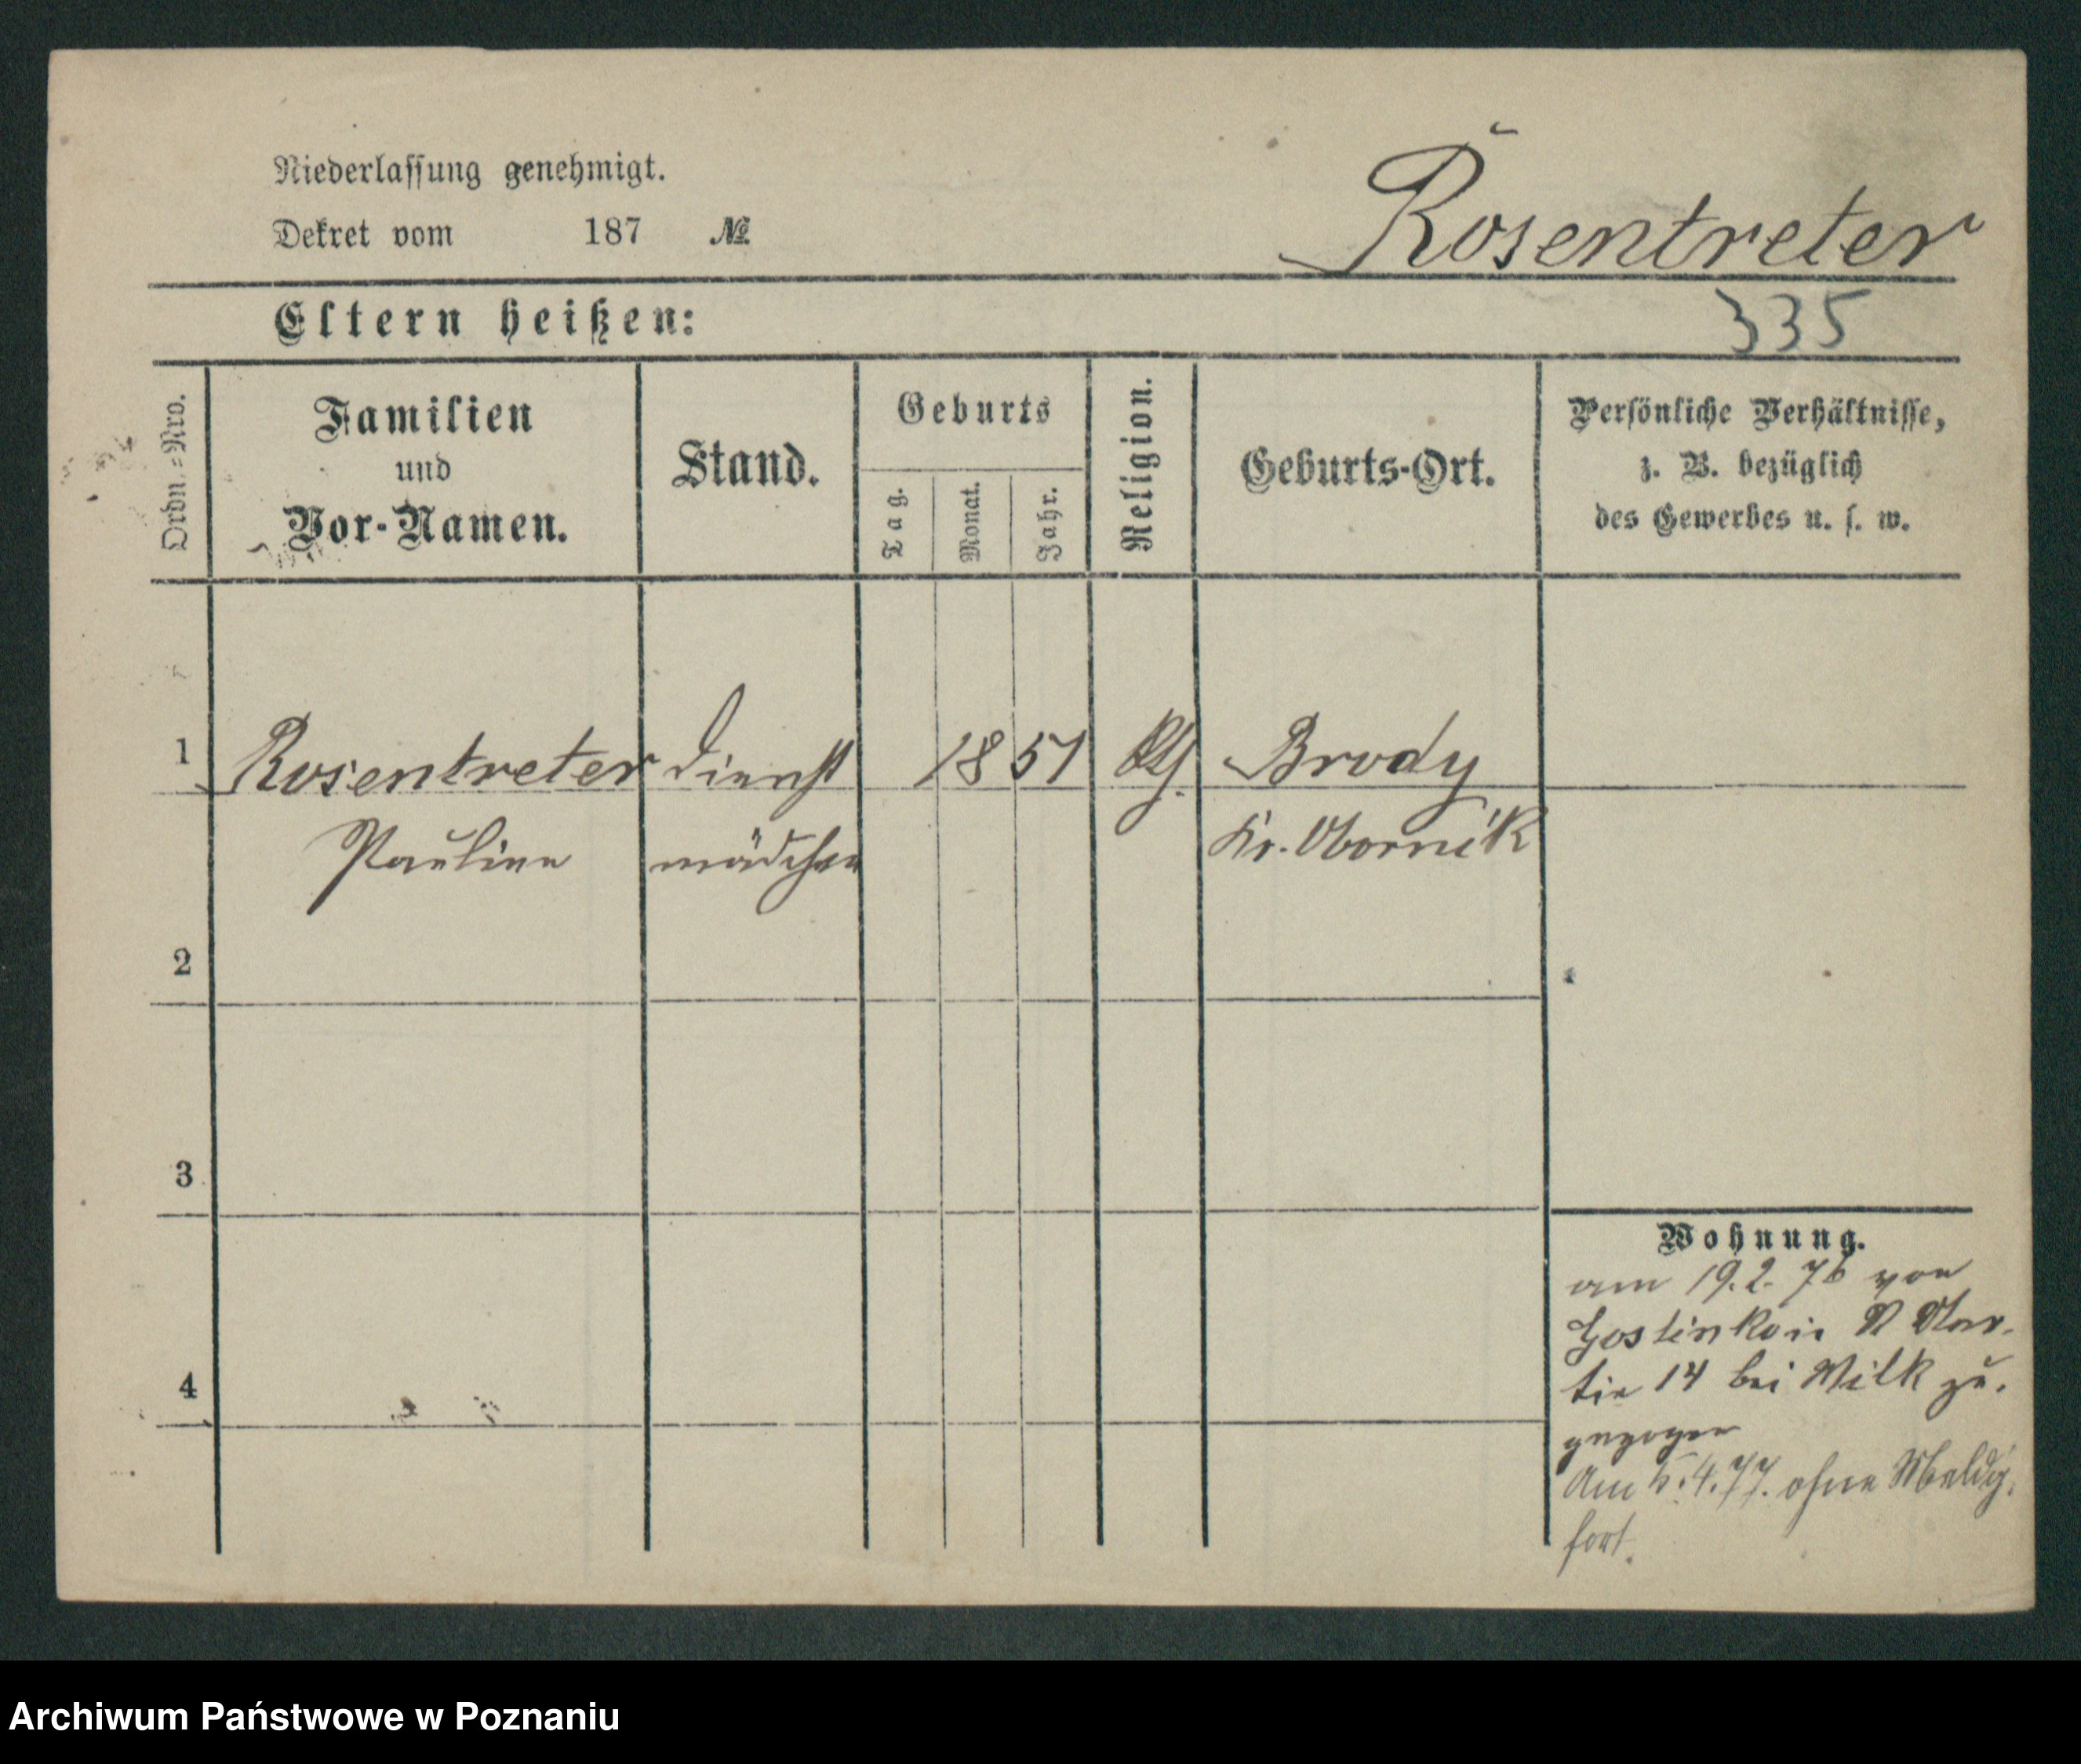 Niederlassung genehmigt.
Dekret vom 187 №
Rosentreter
335
Eltern heißen:
Ordn.-Nro.
Familien
und
Vor-Namen.
Stand.
Geburts
Tag.
Monat.
Jahr.
Religion.
Geburts-Ort.
Persönliche Verhältnisse,
z. B. bezüglich
des Gewerbes u. s. w.
1
Rosentreter Dienst 1851 Brody
Pauline mädchen Kr. Obornik
2
3
4
Wohnung.
am 19.2.76 von
14 bei Wilk zu-
gezogen
Am 5.4.77. ohne Meldg.
fort.
Archiwum Państwowe w Poznaniu